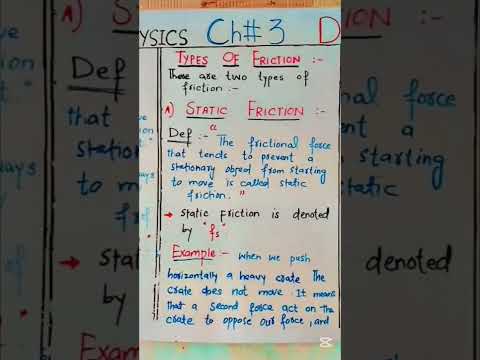 YSICS Ch# 3 D
TYPES OF FRICTION :-
These are two types of
friction :-
A) STATIC FRICTION :-
Def :- "The frictional force
that tends to prevent a
stationary object from starting
to move is called static
friction."
→ static friction is denoted
by "fs"
Example :- when we push
horizontally a heavy crate The
crate does not move. It means
that a second force act on The
crate to oppose our force, and